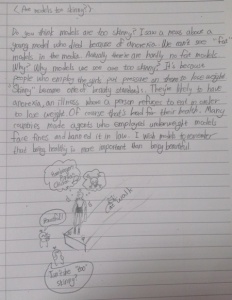 < Are models too skinny? >
Do you think models are too skinny? I saw a news about a
young model who died because of anorexia. We rarely see "fat"
models in the media. Actually there are hardly no fat models.
Why? Why models we see are too skinny? It's because
people who employ the girls put pressure on them to lose weight
"Skinny" became one of beauty standards. They're likely to have
anorexia, an illness where a person refuses to eat in order
to lose weight. Of course that's bad for their health. Many
countries made agents who employed underweight models
face fines and banned it in law. I wish models to remember
that being healthy is more important than being beautiful
beautiful!
cat walk
I wish I
"too
skinny"